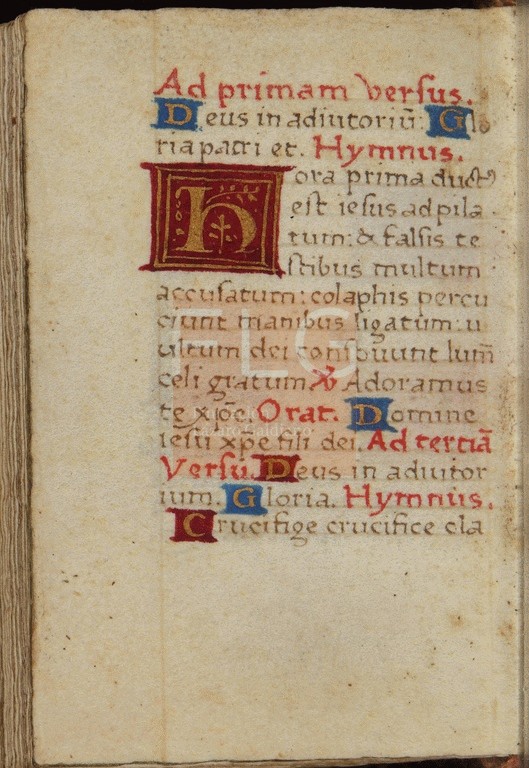 Ad primam versus.
Deus in adiutoriū. Glo
ria patri et. Hymnus.
Hora prima duct⁹
est iesus ad pila
tum: & falsis te
stibus multum
accusatum: colaphis percu
ciunt manibus ligatum: u
ultum dei conspuunt lum̄
celi gratum ℣ Adoramus
te xp̄e. Orat. Domine
iesu xpe fili dei. Ad tertiā
Versu. Deus in adiutor
ium. Gloria. Hymnus.
Crucifige crucifice cla
FLG